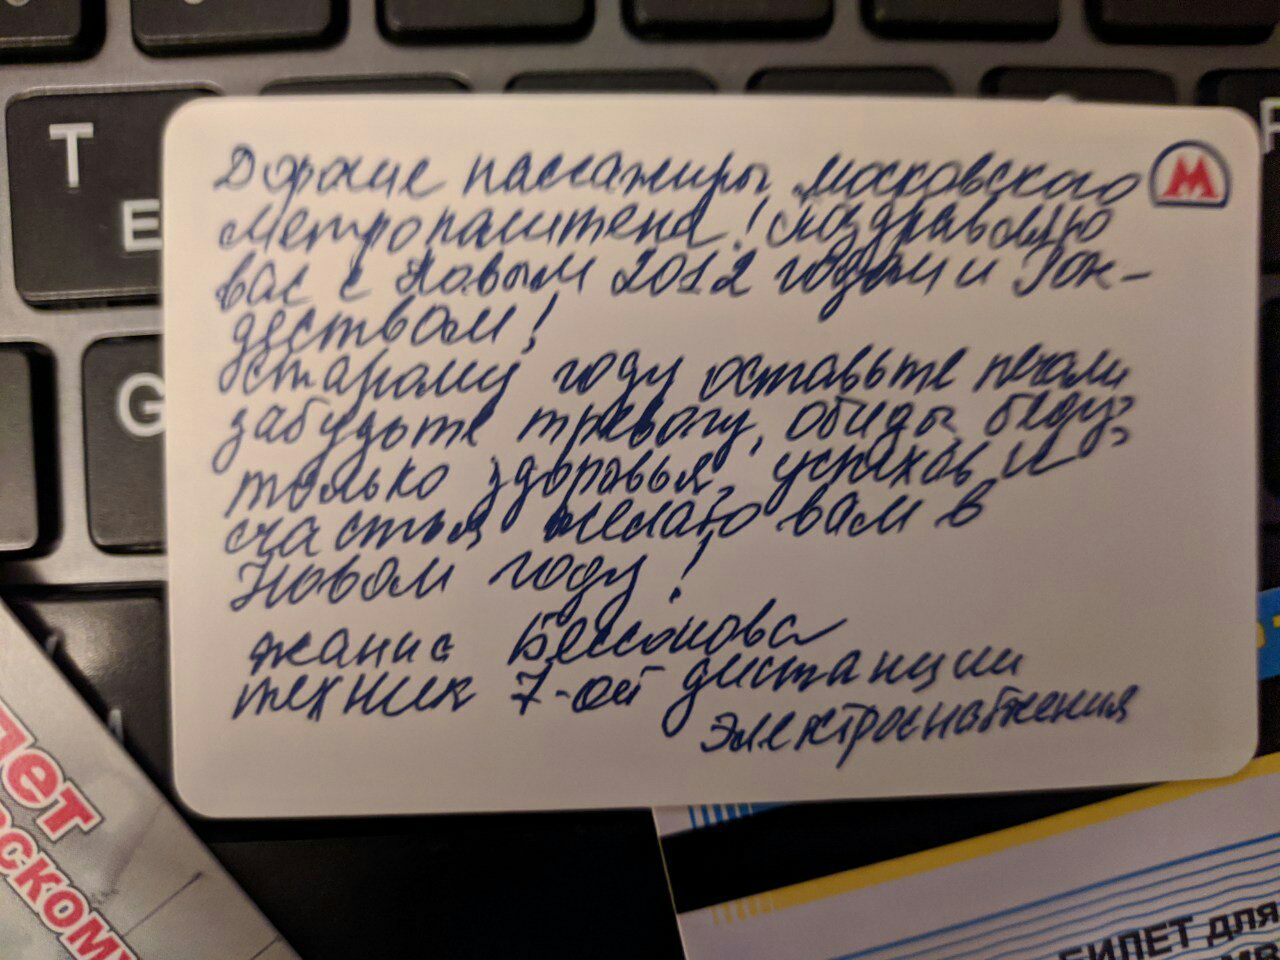 Дорогие пассажиры Московского
М
метрополитена! Поздравляю
вас с Новым 2012 годом и Рож-
деством!
Старому году оставьте печали,
забудьте тревогу, обиды, беду,
только здоровья, успехов и
счастья желаю вам в
Новом году!
Жанна Бессонова
техник 7-ой дистанции
электроснабжения
T
E
G
лет
скому
БИЛЕТ ДЛЯ